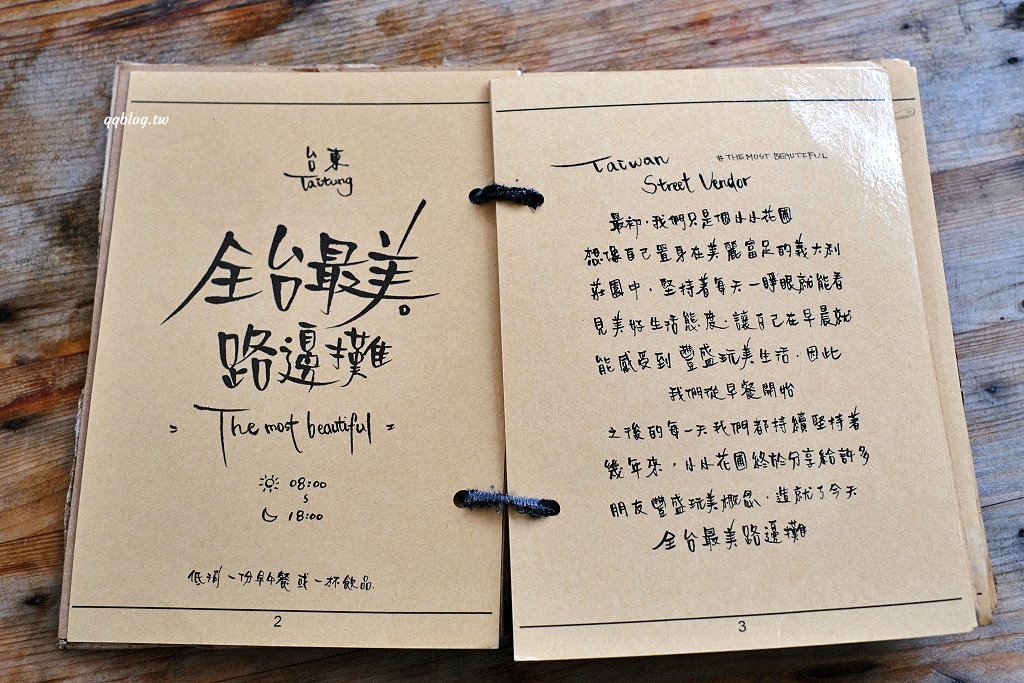 qqblog.tw
台東
Taitung
全台最美。
路邊攤
= The most beautiful =
08:00
18:00
低消一份早午餐或一杯飲品.
2
Taiwan
#THE MOST BEAUTIFUL
Street Vendor
最初,我們只是個小小花圃
想像自己置身在美麗富足的義大利
莊園中,堅持著每天一睜眼就能看
見美好生活態度,讓自己在早晨就
能感受到豐盛玩美生活,因此
我們從早餐開始
之後的每一天我們都持續堅持著
幾年來,小小花圃終於分享給許多
朋友豐盛玩美概念,造就了今天
全台最美路邊攤
3